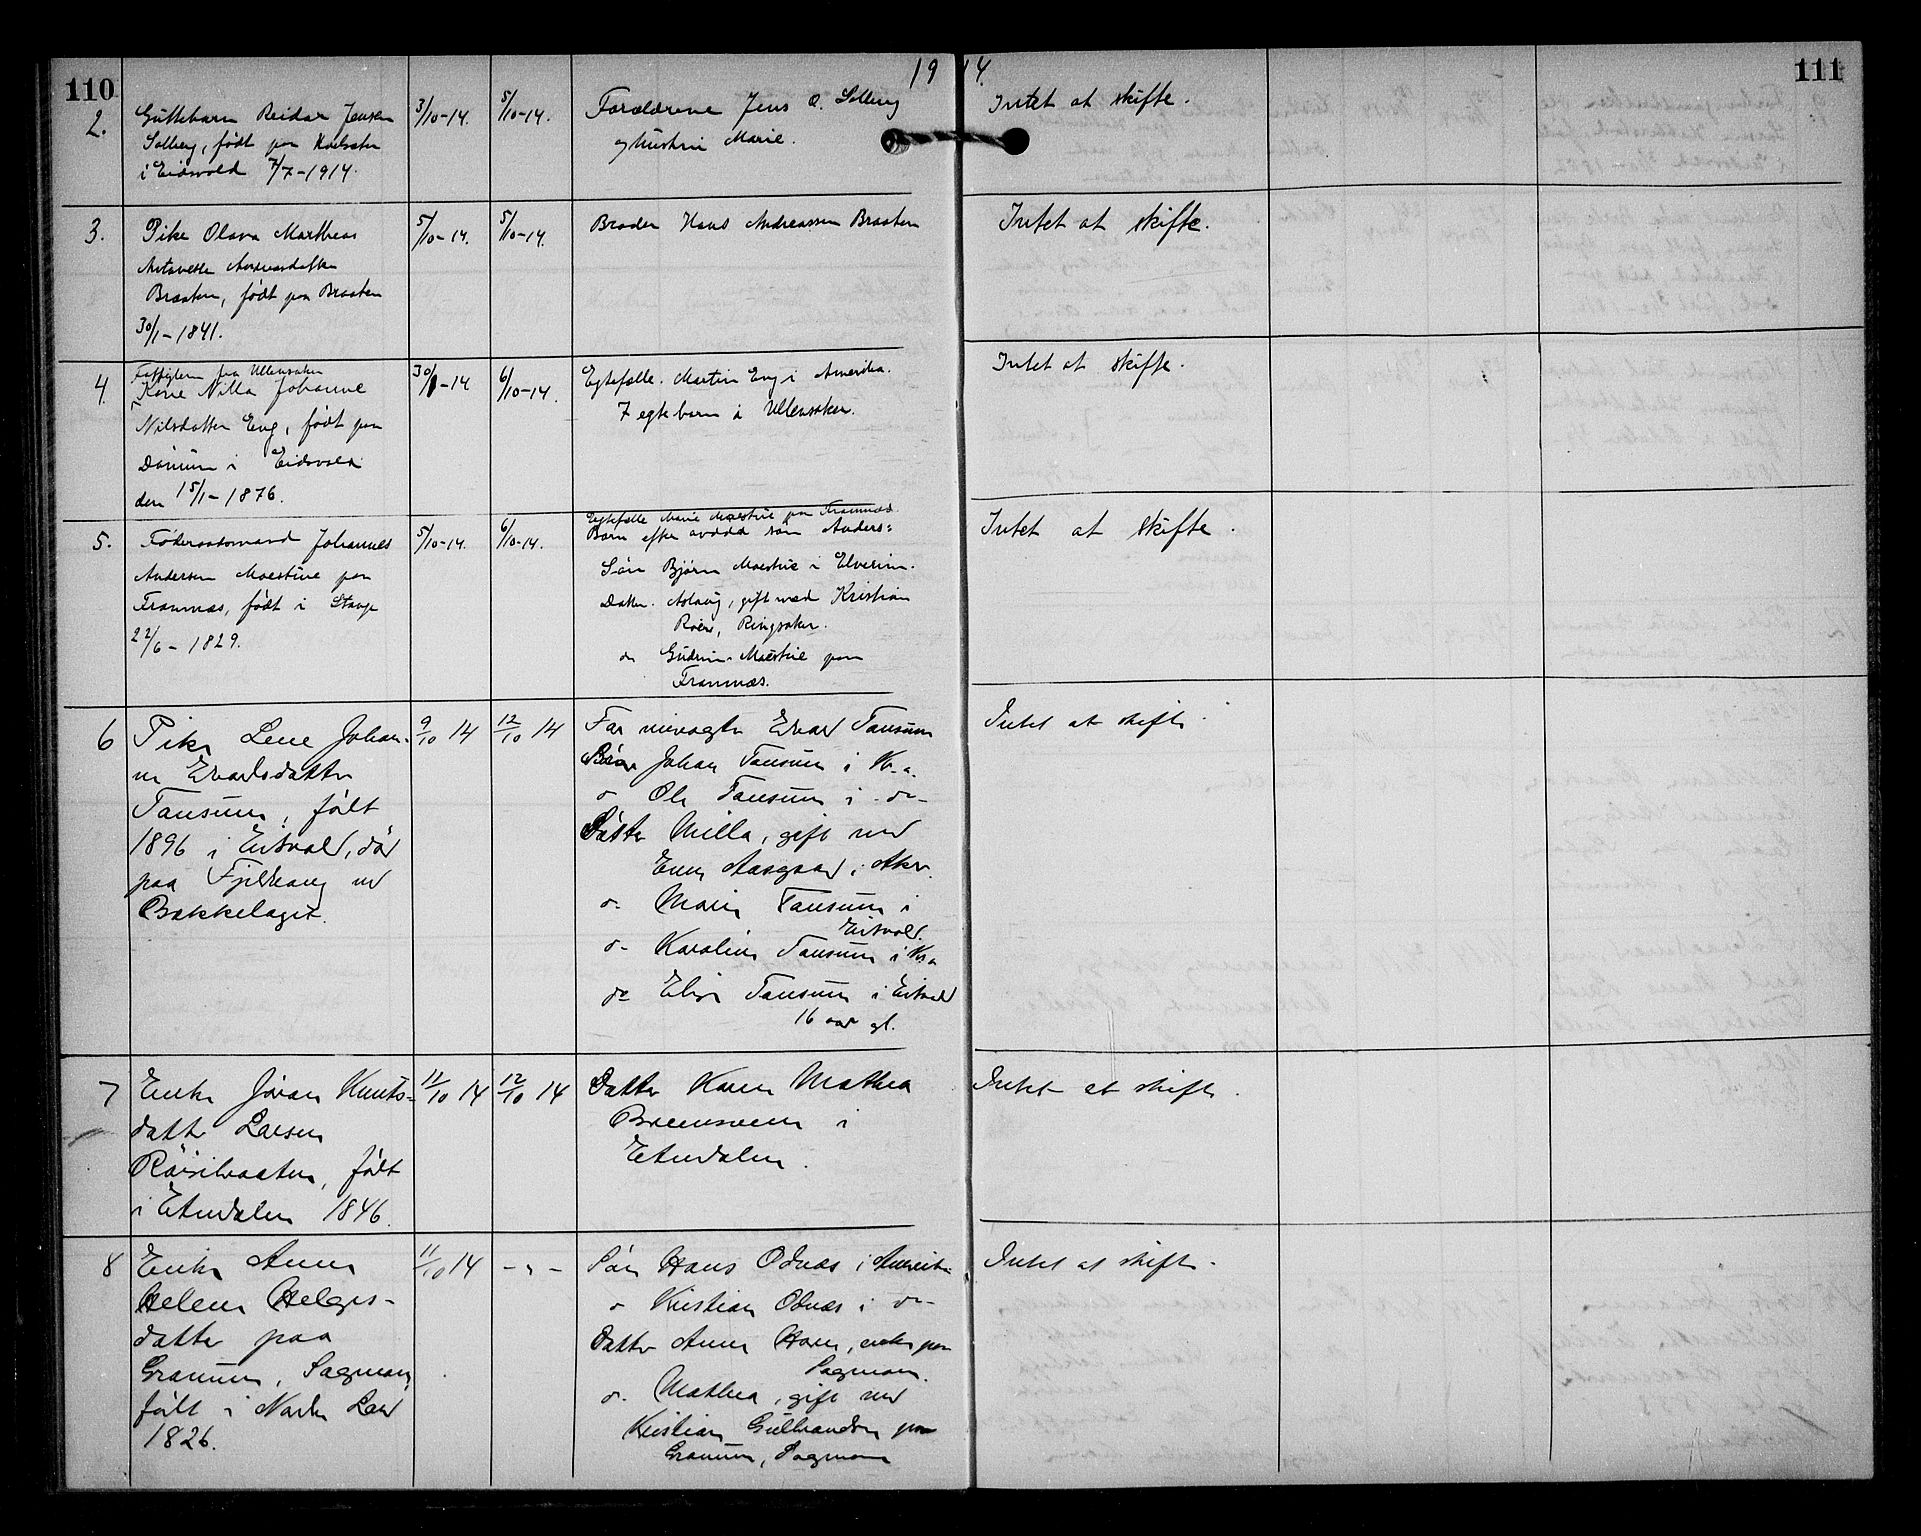 110
19 14.
111
2.
Guttebarn Reidar Jensen
Solberg, født paa
i Eidsvold 7/7-1914.
3/10-14.
5/10-14.
Forældrene Jens O. Solberg
og hustru Marie.
Intet at skifte.
3.
Pike Olava Marthea
Braaten, født paa Braaten
30/1-1841.
5/10-14.
5/10-14.
Broder Hans Andreassen Braaten
Intet at skifte.
4.
Fattiglem fra Ullensaker
Kone Nilla Johanne
Nilsdatter Eng, født paa
i Eidsvold
den 15/1-1876.
30/9-14
6/10-14.
Egtefælle. Martin Eng i Amerika.
7 egtebarn i Ullensaker.
Intet at skifte.
5.
Føderaadsmand Johannes
Andersen Moestue paa
Framnæs, født i Stange
22/6-1829.
5/10-14.
6/10-14.
Egtefælle Marie Moestue paa Framnæs
Barn efter avdød søn Anders:
Søn Bjørn Moestue i Elverum.
Datter. Aslaug, gift med Kristian
Roen, Ringsaker.
do Gudrun Moestue paa
Framnæs.
Intet at skifte.
6
Pike Lene Johan-
ne Edvardsdatter
Tansum, født
1896 i Eidsvold, død
paa Fjeldhaug ved
Bækkelaget.
9/10 14
12/10 14
Far Edvard Tansum
Bror Johan Tansum i Kr.a.
do Ole Tansum i do
Søster Milla, gift med
Even Aasgaard i Aker.
do Marie Tansum i
Eidsvold.
do Karoline Tansum i Kr.a
do Elise Tansum i Eidsvold
16 aar gl.
Intet at skifte.
7
Enke Jøran Knuts-
datter Larsen
født
i Etnedalen 1846.
11/10 14
12/10 14
Datter Karen Mathea
i
Etnedalen.
Intet at skifte.
8
Enke Anne
Helene Helges-
datter paa
Granum, Sagmoen,
født i Nordre Land
1826.
11/10 14
- " -
Søn Hans Odnæs i Amerika
do Kristian Odnæs i do
Datter Anne Horn, enke paa
Sagmoen.
do Mathea, gift med
Kristian Gulbrandsen paa
Granum, Sagmoen
Intet at skifte.